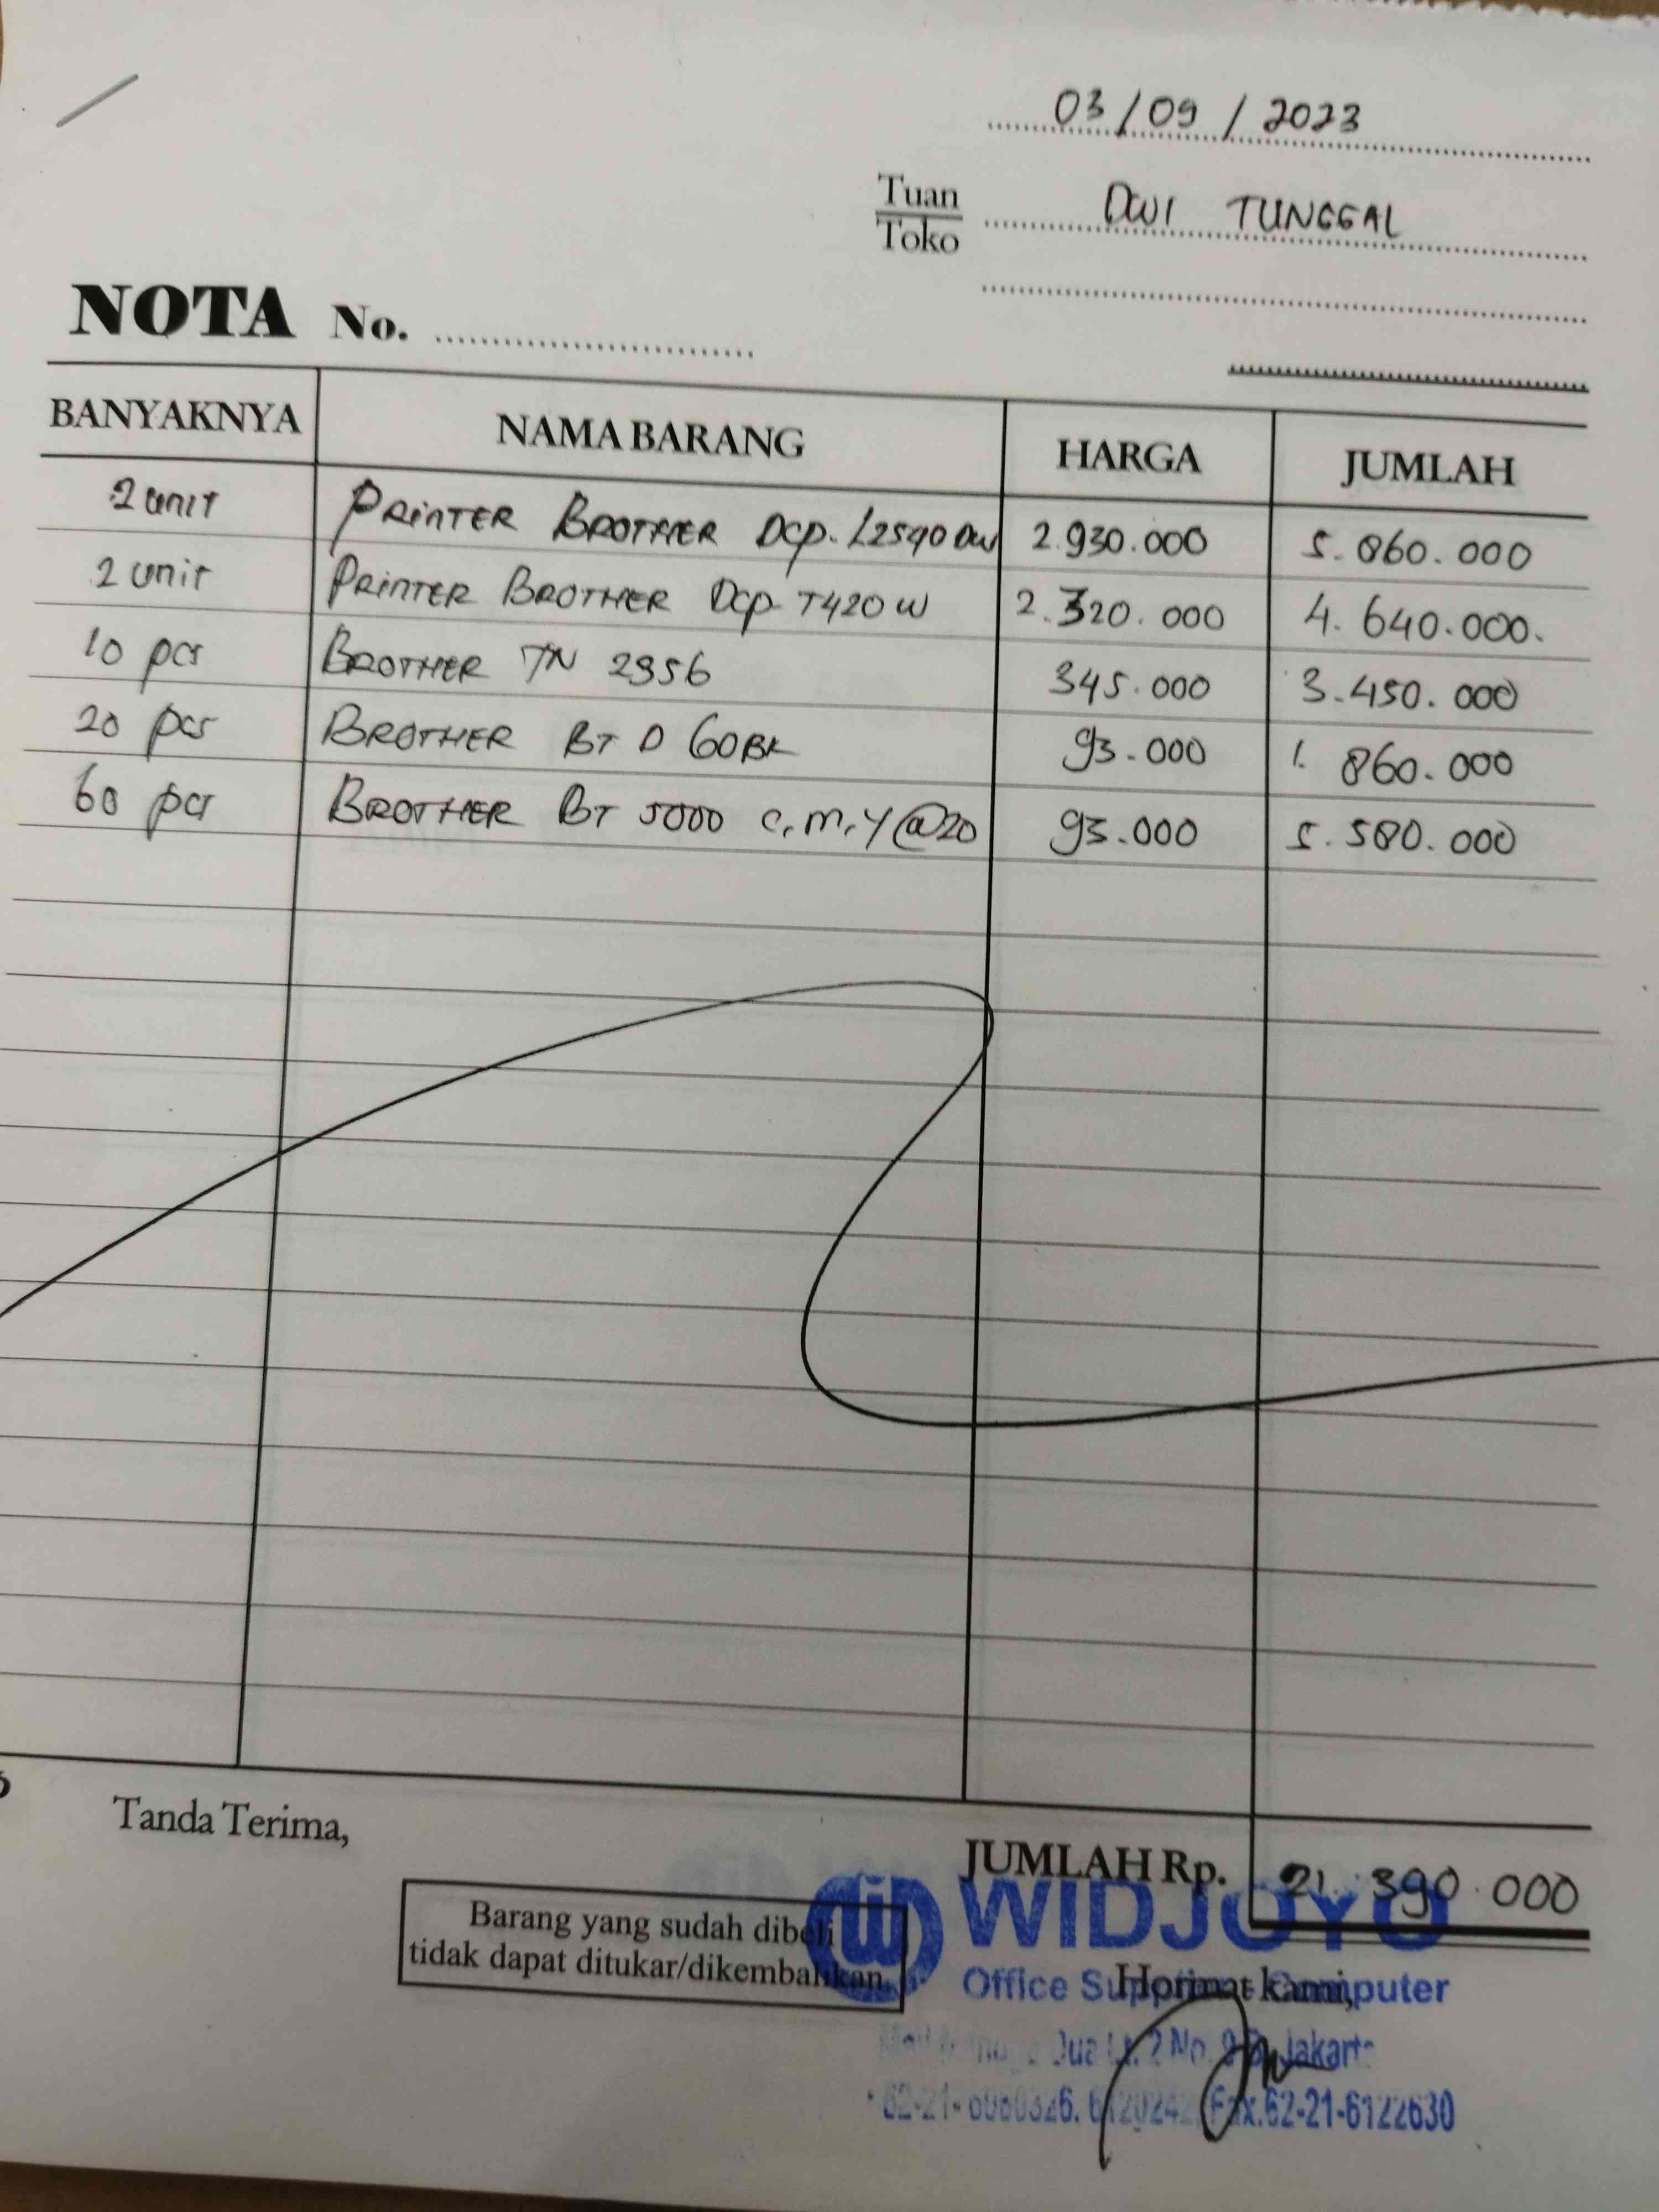 03/09/2023
Tuan
Toko
DWI TUNGGAL
NOTA No.
BANYAKNYA NAMA BARANG HARGA JUMLAH
2 unit PRINTER BROTHER Dcp. L2540 DW 2.930.000 5.860.000
2 unit PRINTER BROTHER Dcp T420W 2.320.000 4.640.000.
10 pcs BROTHER TN 2356 345.000 3.450.000
20 pcs BROTHER BT D 60BK 93.000 1.860.000
60 pcs BROTHER BT 5000 C, M, Y @20 93.000 5.580.000
Tanda Terima,
JUMLAH Rp. 21.390.000
Barang yang sudah dibeli
tidak dapat ditukar/dikembalikan.
WIDJOYO
Hormat kami,
Office Computer
Dua Lt. 2 No. Jakarta
Fax.62-21-6122630